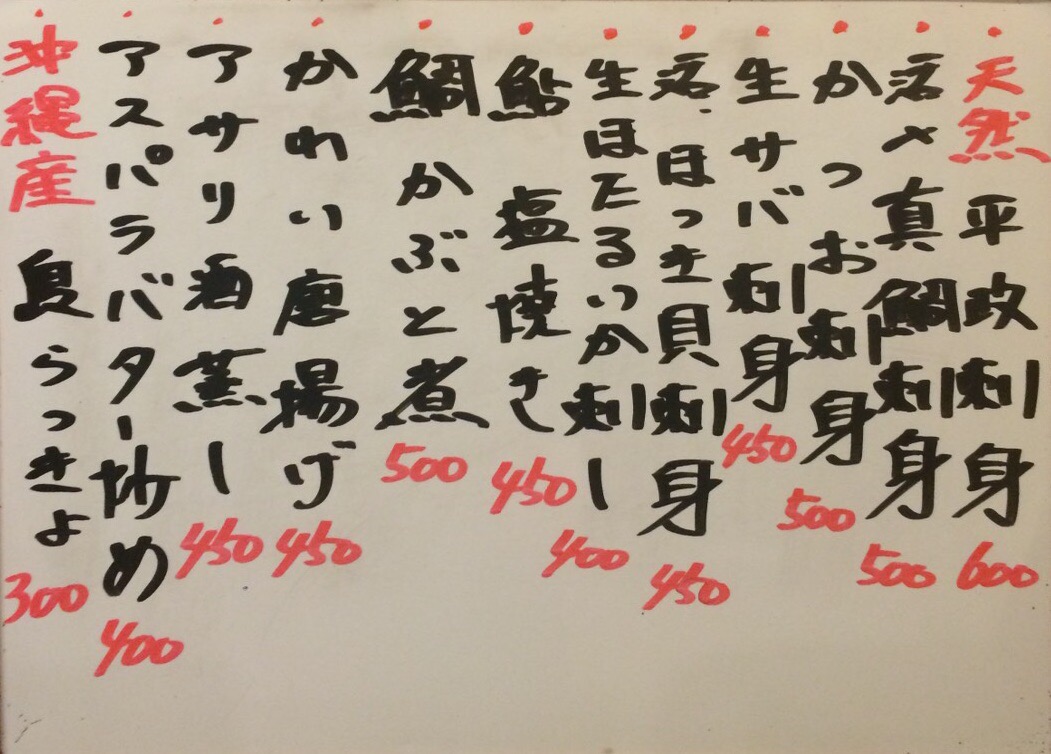 天然 平政刺身 600
活〆真鯛刺身 500
かつお刺身 500
生サバ刺身 450
活ほっき貝刺身 450
生ほたるいか刺し 400
鮎 塩焼き 450
鯛 かぶと煮 500
かれい唐揚げ 450
アサリ酒蒸し 450
アスパラバター炒め 400
沖縄産 島らっきょ 300